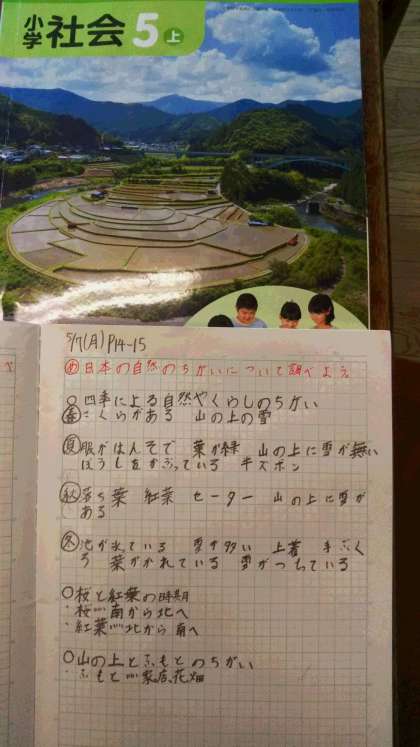 小学 社会 5 上
5/7(月) P14-15
め 日本の自然のちがいについて調べよう
○四季による自然やくらしのちがい
春 さくらがある 山の上の雪
夏 服がはんそで 葉が緑 山の上に雪が無い
ぼうしをかぶっている 半ズボン
秋 落ち葉 紅葉 セーター 山の上に雪が
ある
冬 池が氷ている 雪が多い 上着 手ぶく
ろ 葉がかれている 雪がつもている
○桜と紅葉の時期
・桜…南から北へ
・紅葉…北から南へ
○山の上とふもとのちがい
・ふもと…家、店、花畑